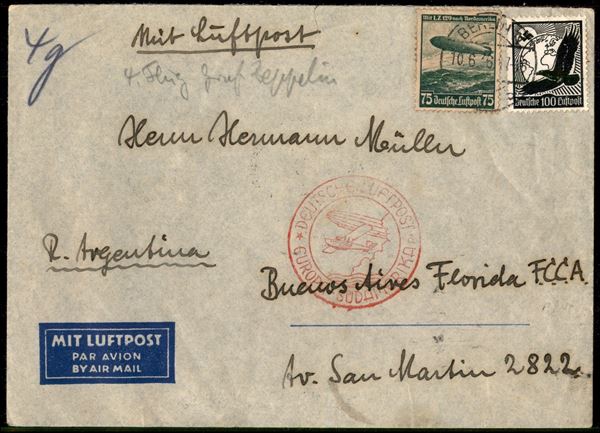 4g
Mit Luftpost
4. Flug Graf Zeppelin
Mit L.Z. 129 nach Nordamerika
75 Deutsche Luftpost 75
BERLIN
10.6.36
Deutsche 100 Luftpost
Herrn Hermann Müller
DEUTSCHE LUFTPOST
EUROPA SÜDAMERIKA
R. Argentina
Buenos Aires Florida F.C.C.A.
MIT LUFTPOST
PAR AVION
BY AIR MAIL
Av. San Martin 2822.